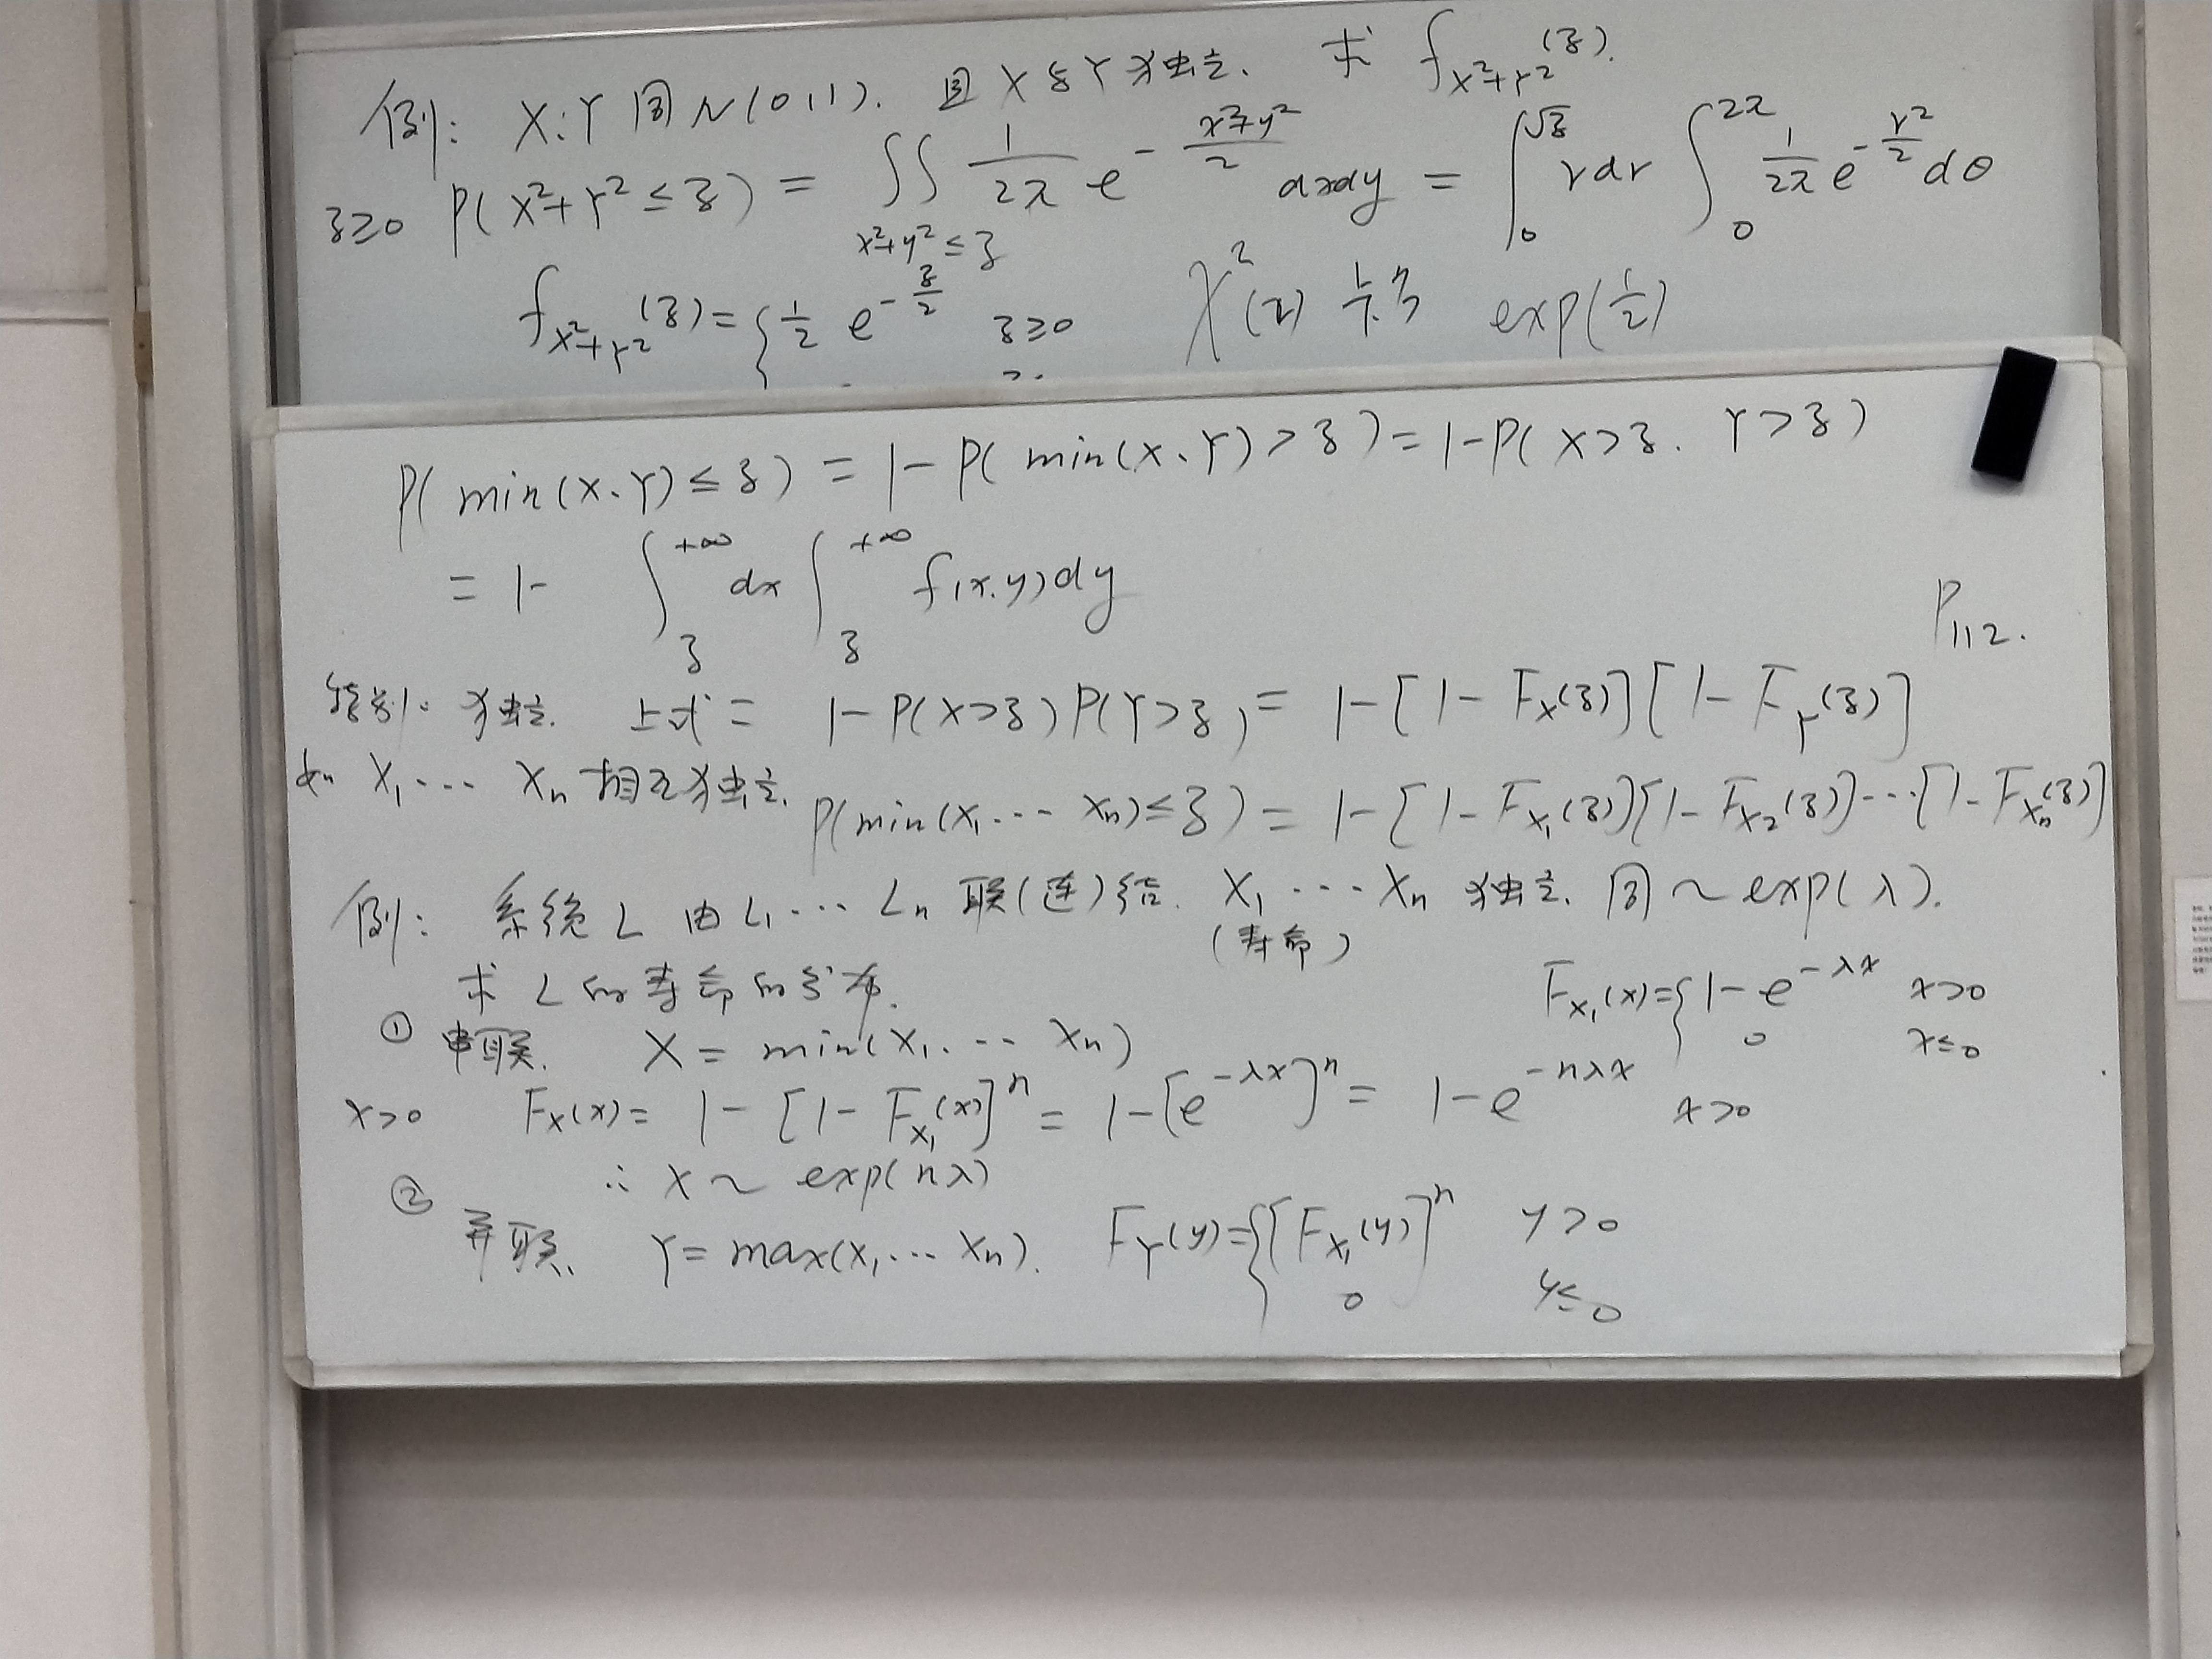 例: X、Y 同 N(0,1). 且 X 与 Y 独立. 求 f_{X²+Y²}(z).
z≥0 P(X²+Y²≤z) = ∬_{x²+y²≤z} \frac{1}{2π} e^{-\frac{x²+y²}{2}} dxdy = ∫_0^{√z} rdr ∫_0^{2π} \frac{1}{2π} e^{-\frac{r²}{2}} dθ
f_{X²+Y²}(z) = { \frac{1}{2} e^{-\frac{z}{2}} z≥0 χ²(2) 分布 exp(\frac{1}{2})
P(min(X、Y)≤z) = 1-P(min(X、Y)>z) = 1-P(X>z. Y>z)
= 1- ∫_z^{+∞} dx ∫_z^{+∞} f(x.y)dy
P112.
特别: 独立. 上式 = 1-P(X>z)P(Y>z) = 1-[1-F_X(z)][1-F_Y(z)]
如 X₁… Xₙ 相互独立.
P(min(X₁… Xₙ)≤z) = 1-[1-F_{X₁}(z)][1-F_{X₂}(z)]…[1-F_{Xₙ}(z)]
例: 系统 L 由 L₁… Lₙ 联(连)结. X₁ … Xₙ 独立. 同 ~ exp(λ).
(寿命)
求 L 的寿命的分布.
F_{X₁}(x) = { 1-e^{-λx} x>0
0 x≤0
① 串联. X = min(X₁. … Xₙ)
x>0 F_X(x) = 1-[1-F_{X₁}(x)]ⁿ = 1-[e^{-λx}]ⁿ = 1-e^{-nλx} x>0
∴ X ~ exp(nλ)
② 并联. Y = max(X₁… Xₙ). F_Y(y) = { [F_{X₁}(y)]ⁿ y>0
0 y≤0